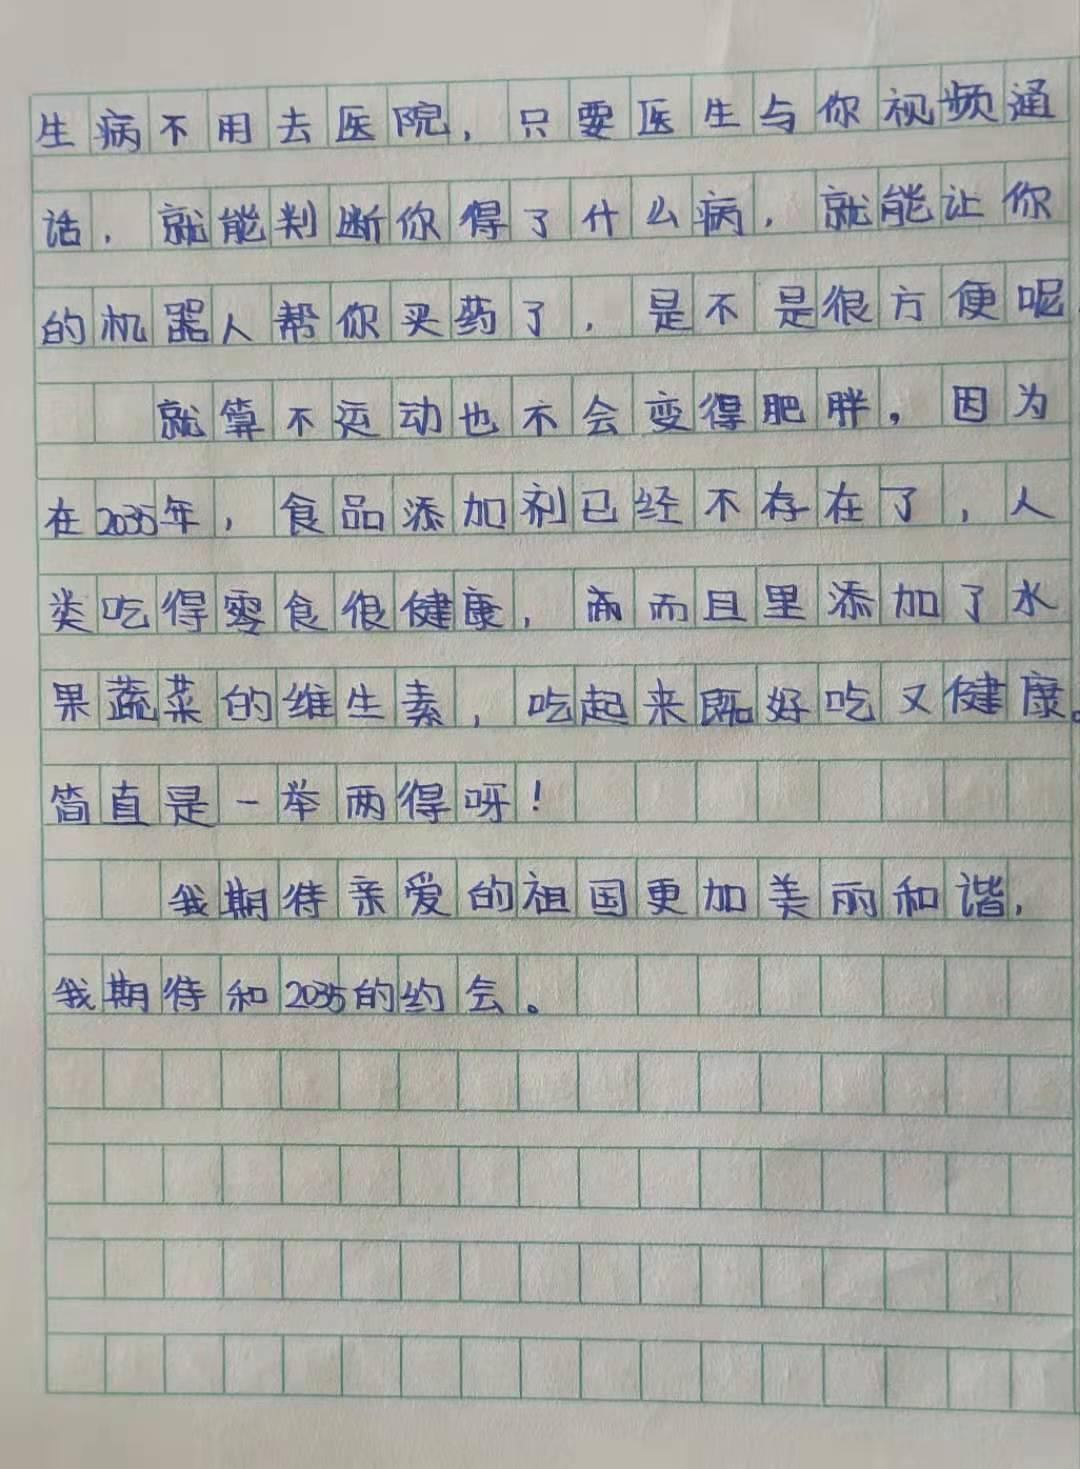 生病不用去医院，只要医生与你视频通
话，就能判断你得了什么病，就能让你
的机器人帮你买药了，是不是很方便呢
就算不运动也不会变得肥胖，因为
在2035年，食品添加剂已经不存在了，人
类吃得零食很健康，而且里添加了水
果蔬菜的维生素，吃起来既好吃又健康。
简直是一举两得呀！
我期待亲爱的祖国更加美丽和谐，
我期待和2035的约会。